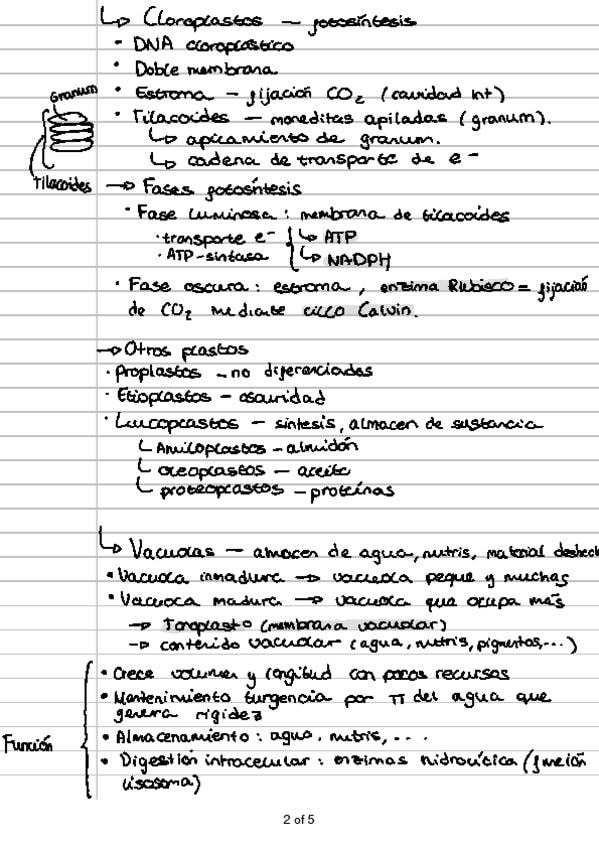 ↳ Cloroplastos — fotosíntesis
• DNA cloroplástico
• Doble membrana
• Estroma — fijación CO₂ (cavidad int)
Granum
• Tilacoides — moneditas apiladas (granum).
↳ apilamiento de granum.
↳ cadena de transporte de e⁻
Tilacoides
→ Fases fotosíntesis
• Fase luminosa: membrana de tilacoides
· transporte e⁻ ↳ ATP
· ATP-sintasa ↳ NADPH
• Fase oscura: estroma, enzima Rubisco = fijación
de CO₂ mediante ciclo Calvin.
→ Otros plastos
· Proplastos — no diferenciados
· Etioplastos — oscuridad
· Leucoplastos — síntesis, almacen de sustancia
Amiloplastos — almidón
oleoplastos — aceite
proteoplastos — proteínas
↳ Vacuolas — almacen de agua, nutris, material deshech
• Vacuola inmadura → vacuola peque y muchas
• Vacuola madura → vacuola que ocupa más
→ Tonoplasto (membrana vacuolar)
→ contenido vacuolar (agua, nutris, pigmentos,...)
Función
• Crece volumen y longitud con pocos recursos
• Mantenimiento turgencia por π del agua que
genera rigidez
• Almacenamiento: agua, nutris,...
• Digestión intracelular: enzimas hidrolítica (función
lisosoma)
2 of 5